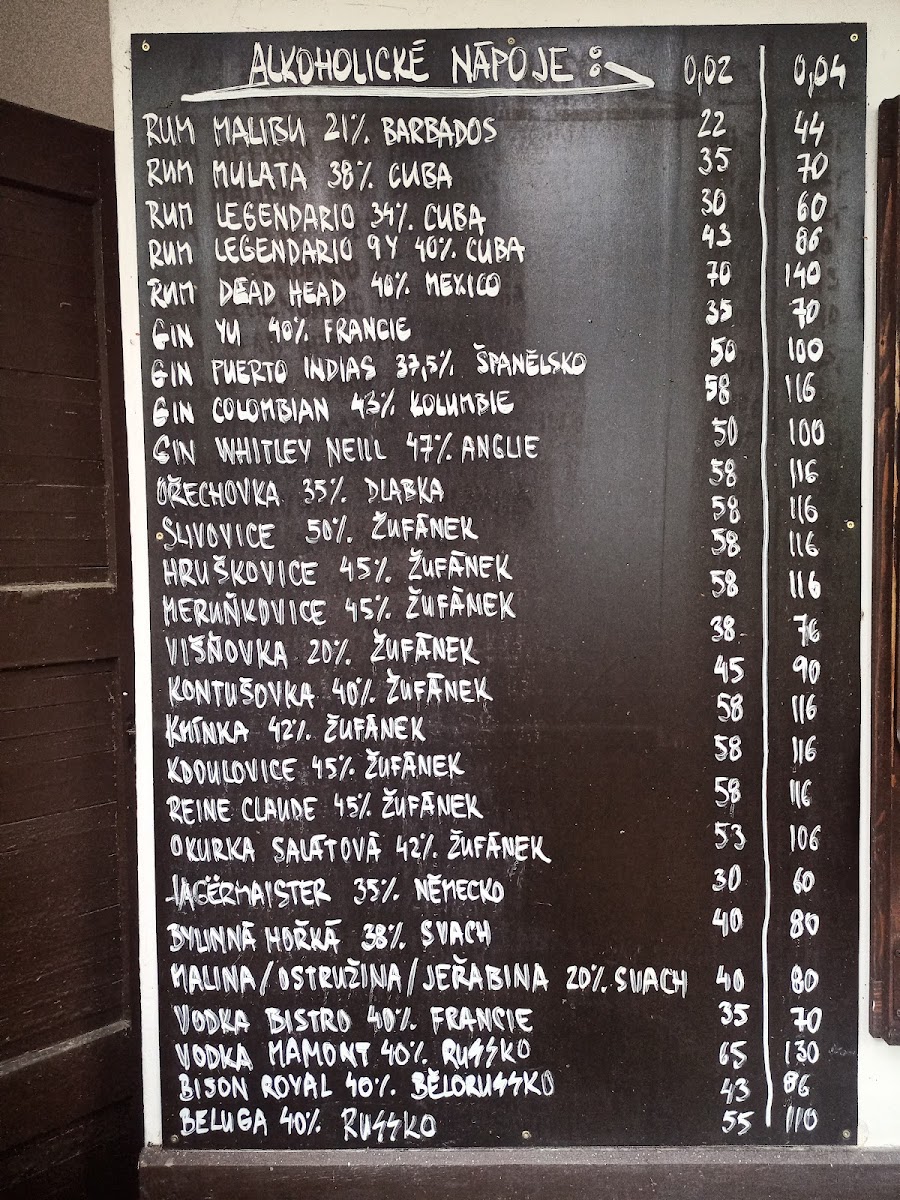 ALKOHOLICKÉ NÁPOJE : 0,02 0,04
RUM MALIBU 21% BARBADOS 22 44
RUM MULATA 38% CUBA 35 70
RUM LEGENDARIO 34% CUBA 30 60
RUM LEGENDARIO 9Y 40% CUBA 43 86
RUM DEAD HEAD 40% MEXICO 70 140
GIN YU 40% FRANCIE 35 70
GIN PUERTO INDIAS 37,5% ŠPANĚLSKO 50 100
GIN COLOMBIAN 43% KOLUMBIE 58 116
GIN WHITLEY NEILL 47% ANGLIE 50 100
OŘECHOVKA 35% DLABKA 58 116
SLIVOVICE 50% ŽUFÁNEK 58 116
HRUŠKOVICE 45% ŽUFÁNEK 58 116
MERUŇKOVICE 45% ŽUFÁNEK 58 116
VIŠŇOVKA 20% ŽUFÁNEK 38 76
KONTUŠOVKA 40% ŽUFÁNEK 45 90
KMÍNKA 42% ŽUFÁNEK 58 116
KDOULOVICE 45% ŽUFÁNEK 58 116
REINE CLAUDE 45% ŽUFÁNEK 58 116
OKURKA SALÁTOVÁ 42% ŽUFÁNEK 53 106
JAGËRMAISTER 35% NĚMECKO 30 60
BYLINNÁ HOŘKÁ 38% SVACH 40 80
MALINA/OSTRUŽINA/JEŘABINA 20% SVACH 40 80
VODKA BISTRO 40% FRANCIE 35 70
VODKA MAMONT 40% RUSSKO 65 130
BISON ROYAL 40% BĚLORUSSKO 43 86
BELUGA 40% RUSSKO 55 110